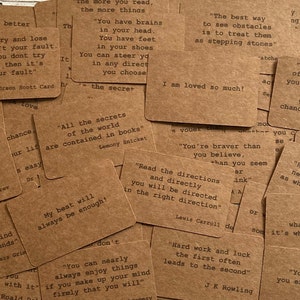 the more you read,
the more things
"You have brains
in your head.
You have feet
in your shoes
You can steer you
in any direct
you choose
"The best way
to see obstacles
is to treat them
as stepping stones"
try and lose
n't your fault
you dont try
then it's
our fault"
Orson Scott Card
I am loved so much!
the secre
"All the secrets
of the world
are contained in books"
Lemony Snicket
"You're braver than
you believe,
than you seem
"Read the directions
and directly
you will be directed
in the right direction"
Lewis Carroll
My best will
always be enough!
"You can nearly
always enjoy things
if you make up your mind
firmly that you will"
"Hard work and luck
the first often
leads to the second"
J K Rowling